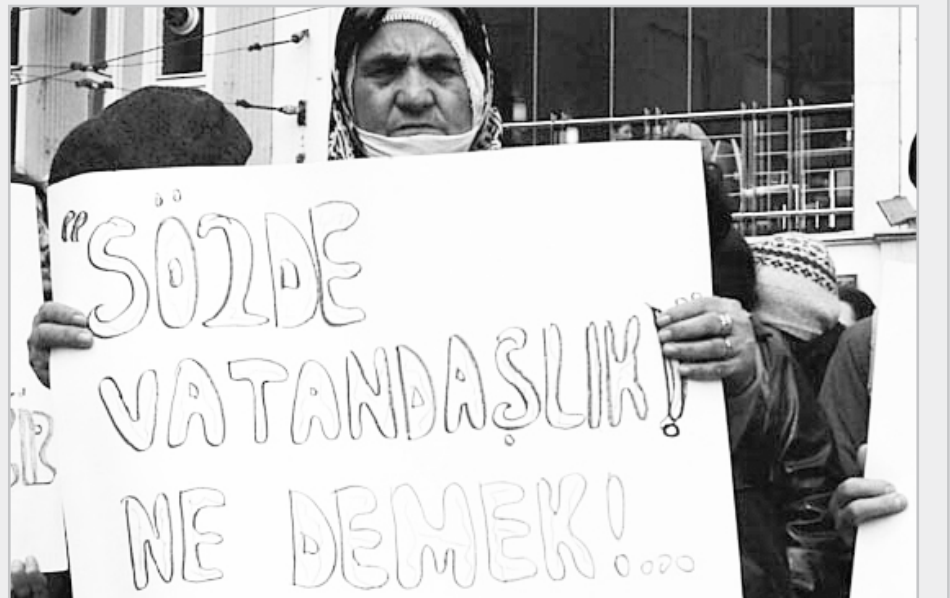 "SÖZDE
VATANDAŞLIK!"
NE DEMEK!...